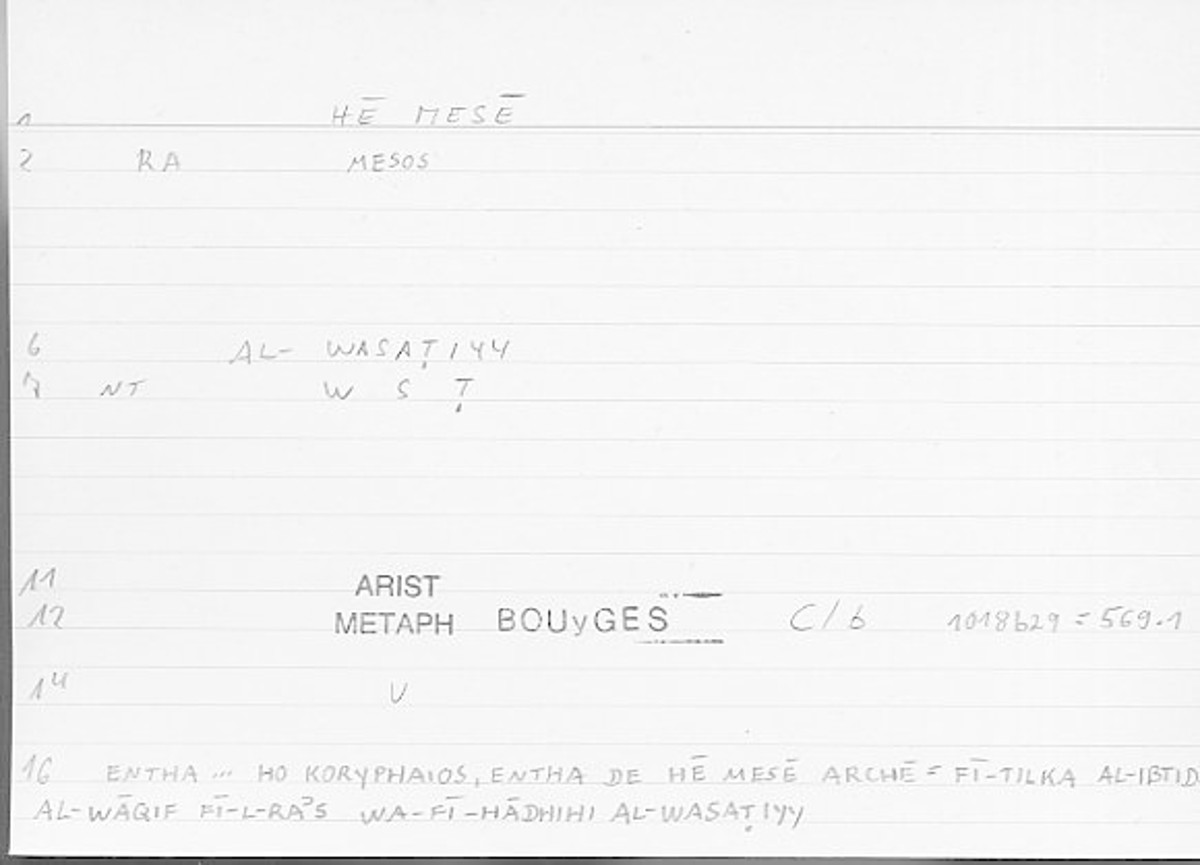 1 HĒ MESĒ
2 RA MESOS
6 AL- WASAṬIYY
7 NT W S Ṭ
11 ARIST
12 METAPH BOUyGES C/6 1018b29 = 569.1
14 V
16 ENTHA ... HO KORYPHAIOS, ENTHA DE HĒ MESĒ ARCHĒ = FĪ-TILKA AL-IBTID
AL-WĀQIF FĪ-L-RAʾS WA-FĪ-HĀDHIHI AL-WASAṬIYY